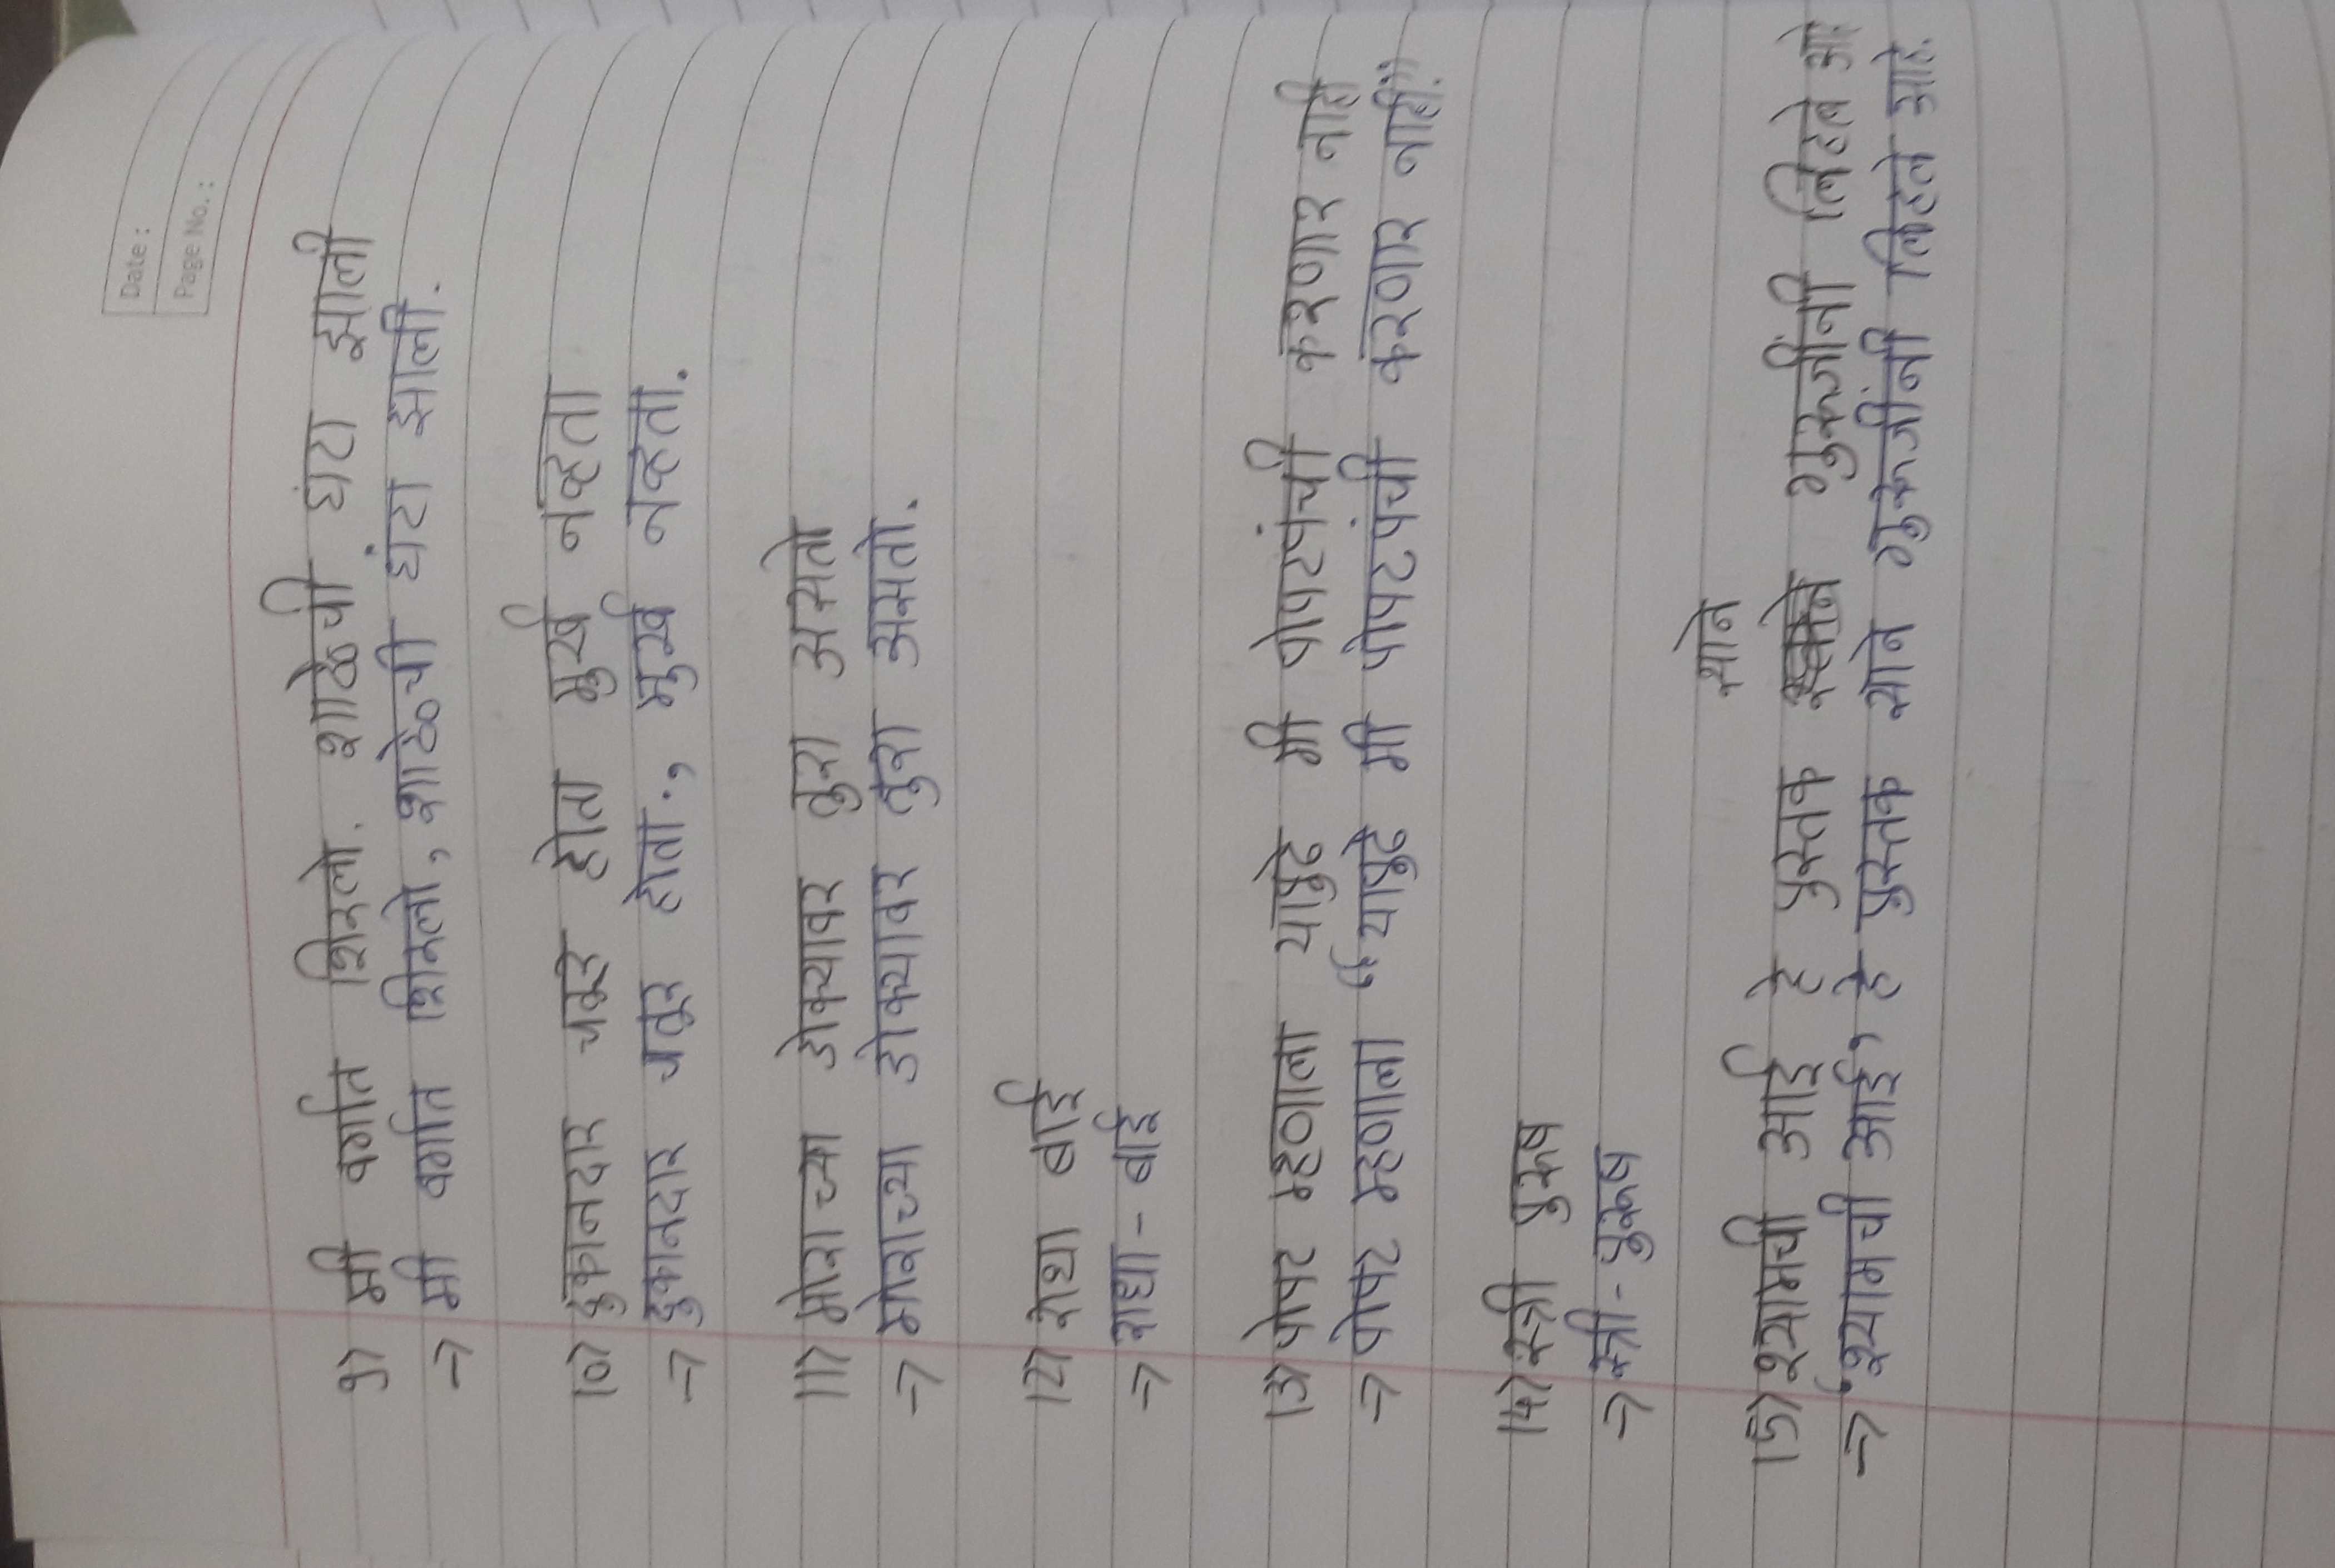 Date :
Page No. :
9) मी वर्गात शिरलो. शाळेची घंटा झाली
→ मी वर्गात शिरलो, शाळेची घंटा झाली.
10) दुकानदार चतूर होता मुर्ख नव्हता
→ दुकानदार चतूर होता., मुर्ख नव्हता.
11) मोराच्या डोक्यावर तुरा असतो
→ मोराच्या डोक्यावर तुरा असतो.
12) राधा बाई
→ राधा - बाई
13) पोपट म्हणाला यापुढे मी पोपटपंची करणार नाही
→ पोपट म्हणाला “यापुढे मी पोपटपंची करणार नाही.”
14) स्त्री पुरूष
→ स्त्री - पुरूष
साने
15) श्यामची आई हे पुस्तक गुरूजींनी लिहले आहे
→ ‘श्यामची आई’ हे पुस्तक साने गुरूजींनी लिहले आहे.